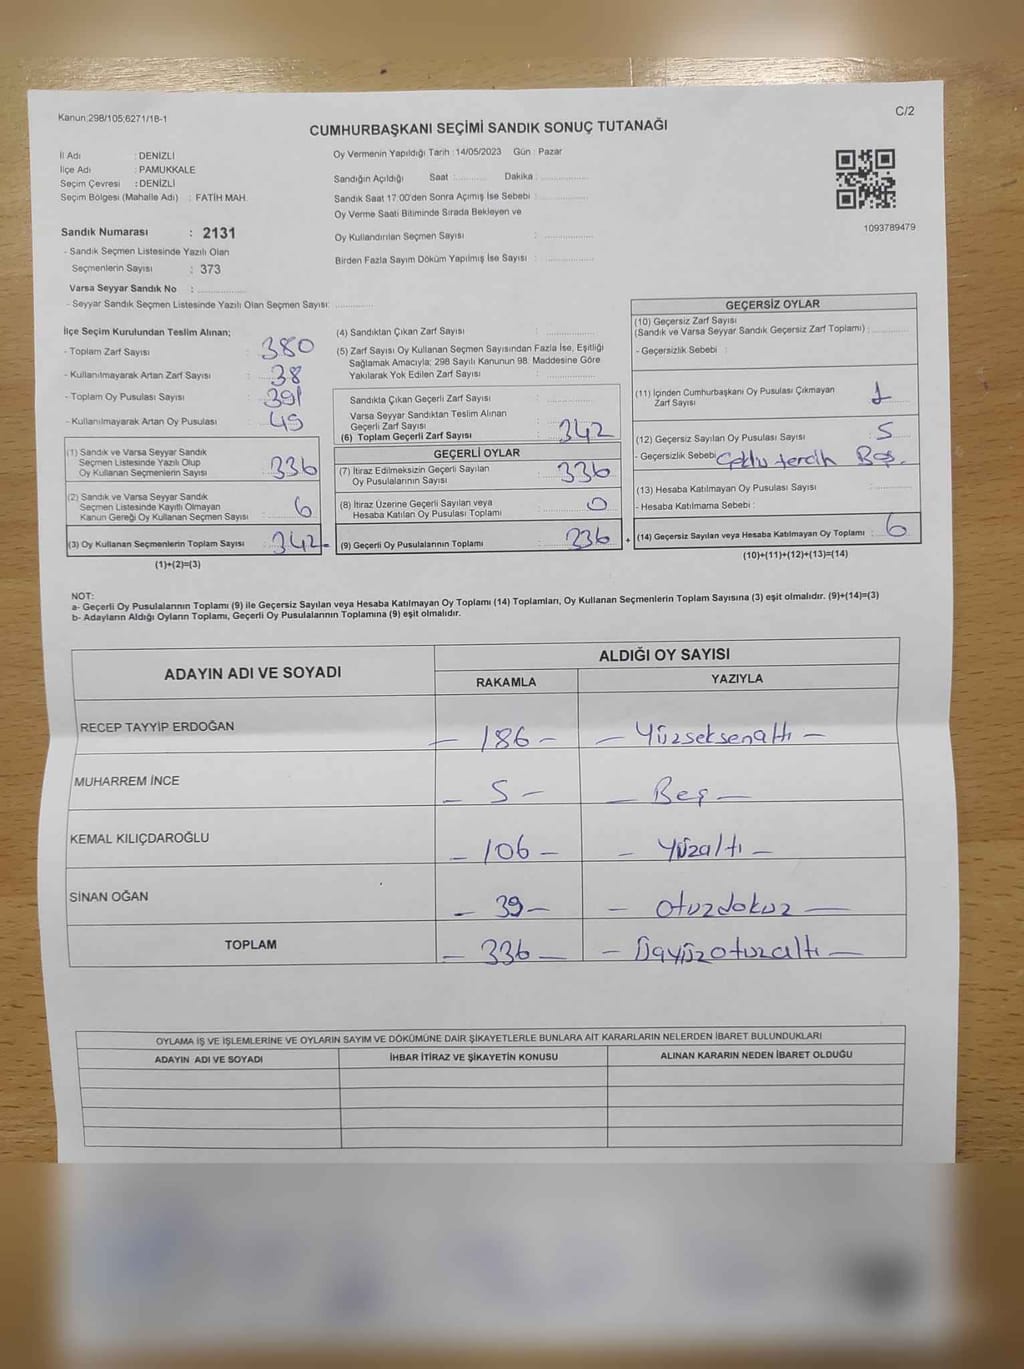 Kanun:298/105;6271/18-1
C/2
CUMHURBAŞKANI SEÇİMİ SANDIK SONUÇ TUTANAĞI
İl Adı : DENİZLİ
İlçe Adı : PAMUKKALE
Seçim Çevresi : DENİZLİ
Seçim Bölgesi (Mahalle Adı) : FATİH MAH.
Sandık Numarası : 2131
- Sandık Seçmen Listesinde Yazılı Olan
Seçmenlerin Sayısı : 373
Varsa Seyyar Sandık No :
- Seyyar Sandık Seçmen Listesinde Yazılı Olan Seçmen Sayısı:
Oy Vermenin Yapıldığı Tarih :14/05/2023 Gün : Pazar
Sandığın Açıldığı Saat : Dakika :
Sandık Saat 17:00'den Sonra Açımış İse Sebebi :
Oy Verme Saati Bitiminde Sırada Bekleyen ve
Oy Kullandırılan Seçmen Sayısı :
Birden Fazla Sayım Döküm Yapılmış İse Sayısı :
1093789479
İlçe Seçim Kurulundan Teslim Alınan;
- Toplam Zarf Sayısı : 380
- Kullanılmayarak Artan Zarf Sayısı : 38
- Toplam Oy Pusulası Sayısı : 391
- Kullanılmayarak Artan Oy Pusulası : 49
(1) Sandık ve Varsa Seyyar Sandık
Seçmen Listesinde Yazılı Olup
Oy Kullanan Seçmenlerin Sayısı : 336
(2) Sandık ve Varsa Seyyar Sandık
Seçmen Listesinde Kayıtlı Olmayan
Kanun Gereği Oy Kullanan Seçmen Sayısı : 6
(3) Oy Kullanan Seçmenlerin Toplam Sayısı : 342
(1)+(2)=(3)
(4) Sandıktan Çıkan Zarf Sayısı :
(5) Zarf Sayısı Oy Kullanan Seçmen Sayısından Fazla İse, Eşitliği
Sağlamak Amacıyla; 298 Sayılı Kanunun 98. Maddesine Göre
Yakılarak Yok Edilen Zarf Sayısı :
Sandıkta Çıkan Geçerli Zarf Sayısı :
Varsa Seyyar Sandıktan Teslim Alınan
Geçerli Zarf Sayısı :
(6) Toplam Geçerli Zarf Sayısı : 342
GEÇERLİ OYLAR
(7) İtiraz Edilmeksizin Geçerli Sayılan
Oy Pusulalarının Sayısı : 336
(8) İtiraz Üzerine Geçerli Sayılan veya
Hesaba Katılan Oy Pusulası Toplamı : 0
(9) Geçerli Oy Pusulalarının Toplamı : 336
+
GEÇERSİZ OYLAR
(10) Geçersiz Zarf Sayısı
(Sandık ve Varsa Seyyar Sandık Geçersiz Zarf Toplamı) :
- Geçersizlik Sebebi :
(11) İçinden Cumhurbaşkanı Oy Pusulası Çıkmayan
Zarf Sayısı : 1
(12) Geçersiz Sayılan Oy Pusulası Sayısı : 5
- Geçersizlik Sebebi: Çoklu tercih Boş.
(13) Hesaba Katılmayan Oy Pusulası Sayısı :
- Hesaba Katılmama Sebebi :
(14) Geçersiz Sayılan veya Hesaba Katılmayan Oy Toplamı : 6
(10)+(11)+(12)+(13)=(14)
NOT:
a- Geçerli Oy Pusulalarının Toplamı (9) ile Geçersiz Sayılan veya Hesaba Katılmayan Oy Toplamı (14) Toplamları, Oy Kullanan Seçmenlerin Toplam Sayısına (3) eşit olmalıdır. (9)+(14)=(3)
b- Adayların Aldığı Oyların Toplamı, Geçerli Oy Pusulalarının Toplamına (9) eşit olmalıdır.
ADAYIN ADI VE SOYADI
ALDIĞI OY SAYISI
RAKAMLA YAZIYLA
RECEP TAYYİP ERDOĞAN – 186 – – Yüzseksenaltı –
MUHARREM İNCE – 5 – – Beş –
KEMAL KILIÇDAROĞLU – 106 – – Yüzaltı –
SİNAN OĞAN – 39 – – Otuzdokuz –
TOPLAM – 336 – – Üçyüzotuzaltı –
OYLAMA İŞ VE İŞLEMLERİNE VE OYLARIN SAYIM VE DÖKÜMÜNE DAİR ŞİKAYETLERLE BUNLARA AİT KARARLARIN NELERDEN İBARET BULUNDUKLARI
ADAYIN ADI VE SOYADI İHBAR İTİRAZ VE ŞİKAYETİN KONUSU ALINAN KARARIN NEDEN İBARET OLDUĞU